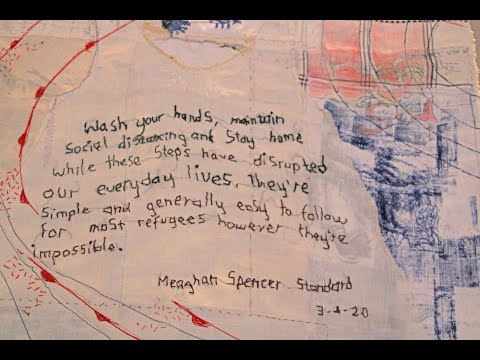 Wash your hands, maintain
social distancing and stay home
while these steps have disrupted
our everyday lives. They're
simple and generally easy to follow
for most refugees however they're
impossible.
Meaghan Spencer Standard
3-4-20